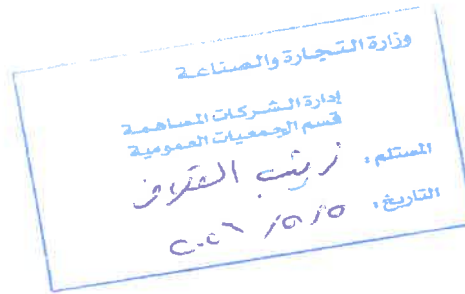 وزارة التجارة والصناعة
إدارة الشركات المساهمة
قسم الجمعيات العمومية
المستلم: زينب
التاريخ: ٢٠٢٦ /٥/٥